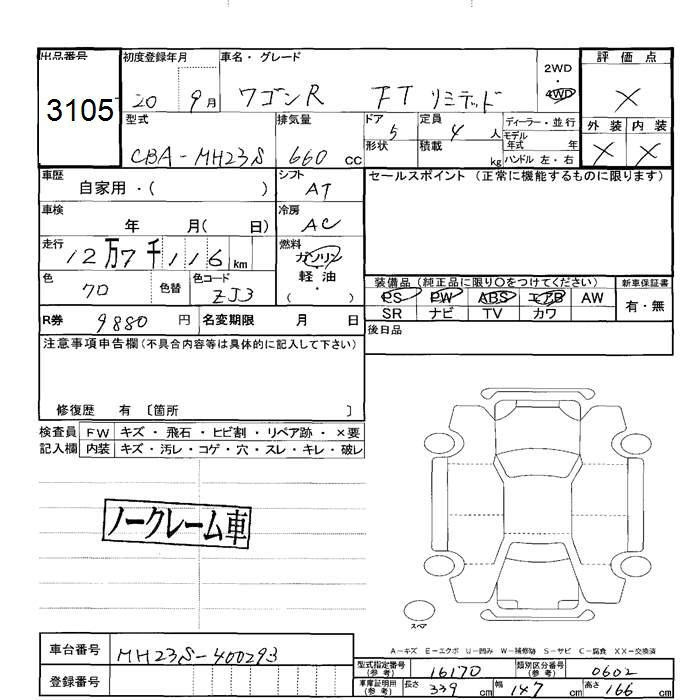 出品番号 初度登録年月 車名・グレード 2WD・4WD 評価点
3105 20 9月 ワゴンR FT リミテッド ×
型式 排気量 ドア 定員 ディーラー・並行 外装 内装
CBA-MH23S 660 cc 5 4人 モデル年式 年 × ×
形状 積載 kg ハンドル 左・右
車歴 自家用・( ) シフト AT セールスポイント (正常に機能するものに限ります)
車検 年 月( 日) 冷房 AC
走行 12万7千116 km 燃料 ガソリン・軽油・( )
色 クロ 色替 色コード ZJ3
装備品 (純正品に限り○をつけてください) 新車保証書
PS PW ABS エアB AW 有・無
SR ナビ TV カワ
R券 9880 円 名変期限 月 日 後日品
注意事項申告欄(不具合内容等は具体的に記入して下さい)
修復歴 有 〔箇所 〕
検査員 FW キズ・飛石・ヒビ割・リペア跡・×要
記入欄 内装 キズ・汚レ・コゲ・穴・スレ・キレ・破レ
ノークレーム車
スペア
A-キズ E-エクボ U-凹み W-補修跡 S-サビ C-腐食 XX-交換済
車台番号 MH23S-400293
登録番号
型式指定番号(参考) 16170 類別区分番号(参考) 0602
車庫証明用(参考) 長さ 339 cm 幅 147 cm 高さ 166 cm